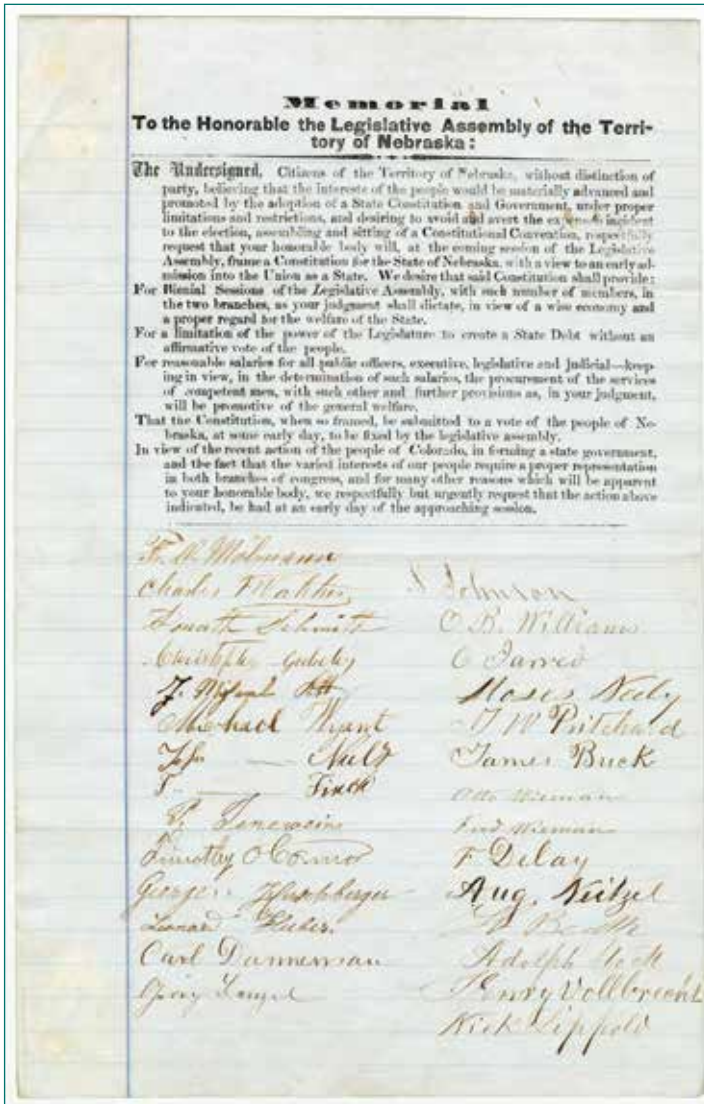 Memorial
To the Honorable the Legislative Assembly of the Terri-
tory of Nebraska:
The Undersigned, Citizens of the Territory of Nebraska, without distinction of
party, believing that the interests of the people would be materially advanced and
promoted by the adoption of a State Constitution and Government, under proper
limitations and restrictions, and desiring to avoid and avert the expense incident
to the election, assembling and sitting of a Constitutional Convention, respectfully
request that your honorable body will, at the coming session of the Legislative
Assembly, frame a Constitution for the State of Nebraska, with a view to an early ad-
mission into the Union as a State. We desire that said Constitution shall provide:
For Bienial Sessions of the Legislative Assembly, with such number of members, in
the two branches, as your judgment shall dictate, in view of a wise economy and
a proper regard for the welfare of the State.
For a limitation of the power of the Legislature to create a State Debt without an
affirmative vote of the people.
For reasonable salaries for all public officers, executive, legislative and judicial—keep-
ing in view, in the determination of such salaries, the procurement of the services
of competent men, with such other and further provisions as, in your judgment,
will be promotive of the general welfare.
That the Constitution, when so framed, be submitted to a vote of the people of Ne-
braska, at some early day, to be fixed by the legislative assembly.
In view of the recent action of the people of Colorado, in forming a state government,
and the fact that the varied interests of our people require a proper representation
in both branches of congress, and for many other reasons which will be apparent
to your honorable body, we respectfully but urgently request that the action above
indicated, be had at an early day of the approaching session.
Charles
Schmitt
Michael
Finck
Timothy O Connor
George Hirschberger
Leonard
Carl Danneman
Johnson
O. B. Williams
C Jarred
Moses Neely
Pritchard
James Buck
Otto Wieman
Fred Wieman
F Delay
Aug. Neitzel
Adolph
Henry Vollbrecht
Nick Lippold